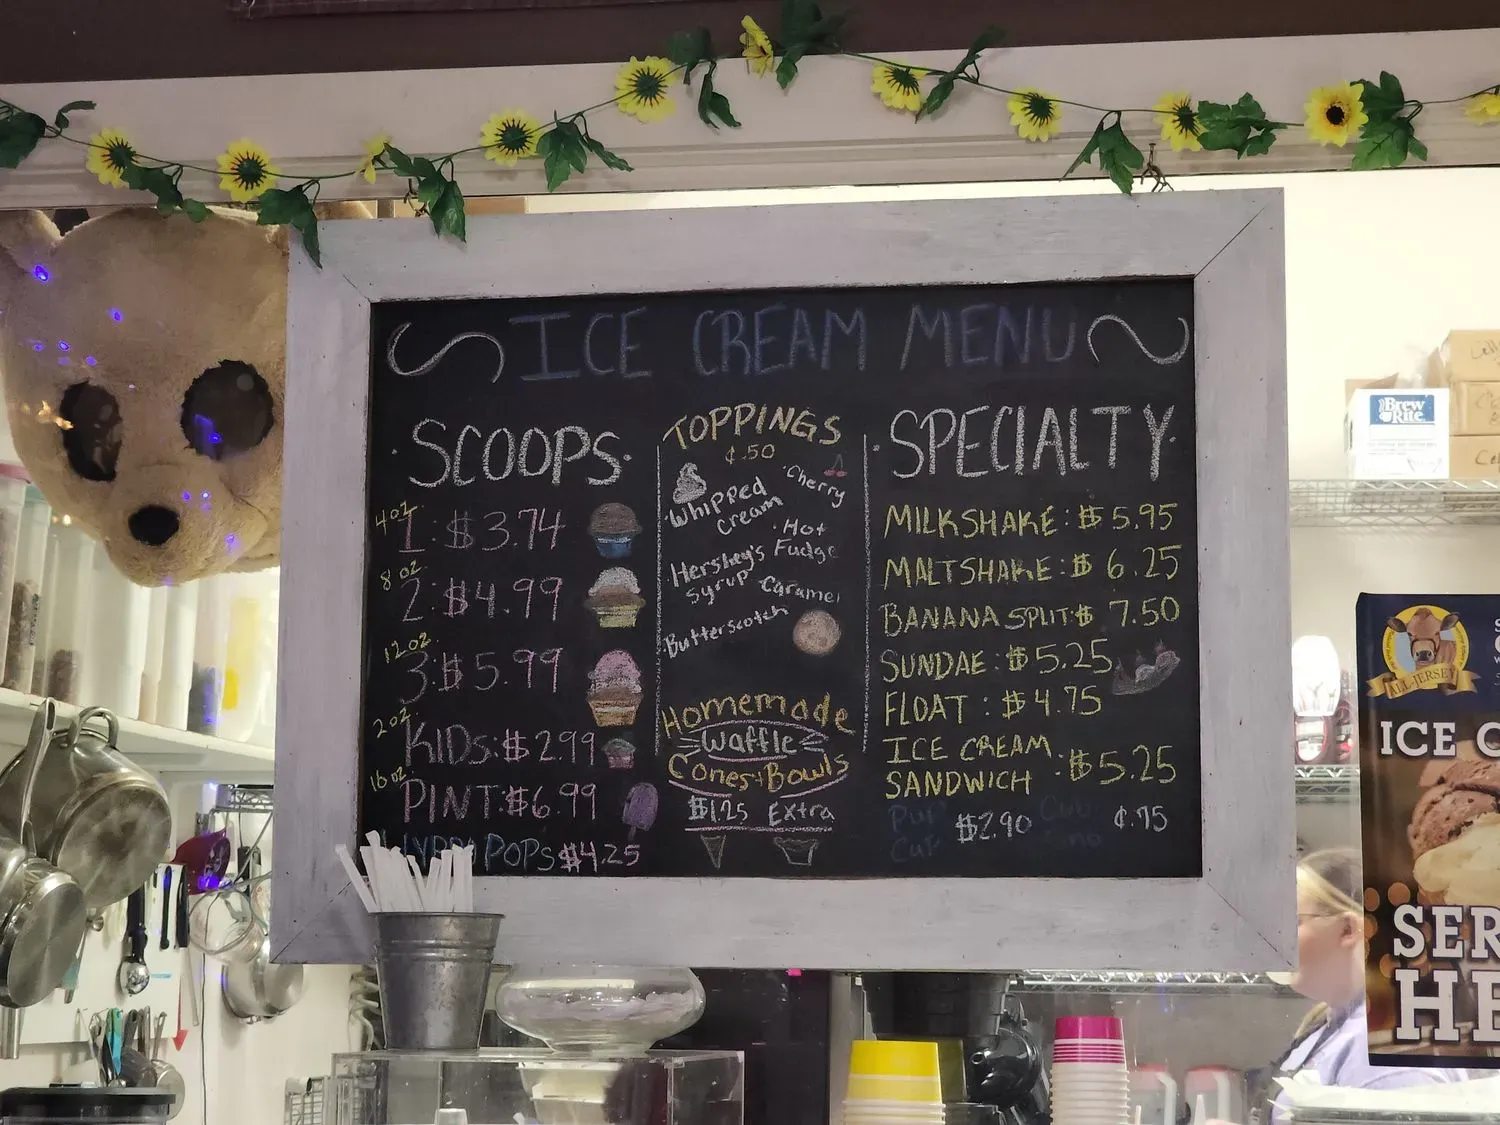 ICE CREAM MENU
SCOOPS
4oz.
1: $3.74
8 oz.
2: $4.99
12oz.
3: $5.99
2oz.
KIDS: $2.99
16 oz.
PINT: $6.99
POPS $4.25
TOPPINGS
¢.50
Whipped
Cream
Cherry
Hot
Fudge
Hershey's
Syrup
Caramel
Butterscotch
Homemade
Waffle
Cones + Bowls
$1.25 Extra
SPECIALTY
MILKSHAKE: $ 5.95
MALTSHAKE: $ 6.25
BANANA SPLIT: $ 7.50
SUNDAE: $5.25
FLOAT: $4.75
ICE CREAM
SANDWICH: $5.25
Pup
Cup $2.90
¢.75
Brew
Rite
ALL-JERSEY
ICE